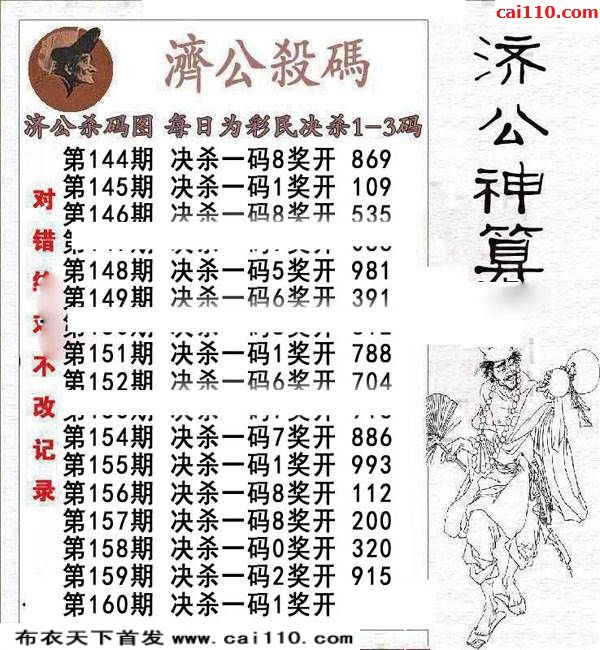 cai110.com
濟公殺碼
济公神算
济公杀码图 每日为彩民决杀1-3码
第144期 决杀一码8奖开 869
第145期 决杀一码1奖开 109
第146期 决杀一码8奖开 535
第148期 决杀一码5奖开 981
第149期 决杀一码6奖开 391
第151期 决杀一码1奖开 788
第152期 决杀一码6奖开 704
第154期 决杀一码7奖开 886
第155期 决杀一码1奖开 993
第156期 决杀一码8奖开 112
第157期 决杀一码8奖开 200
第158期 决杀一码0奖开 320
第159期 决杀一码2奖开 915
第160期 决杀一码1奖开
对错 不改记录
布衣天下首发 www.cai110.com